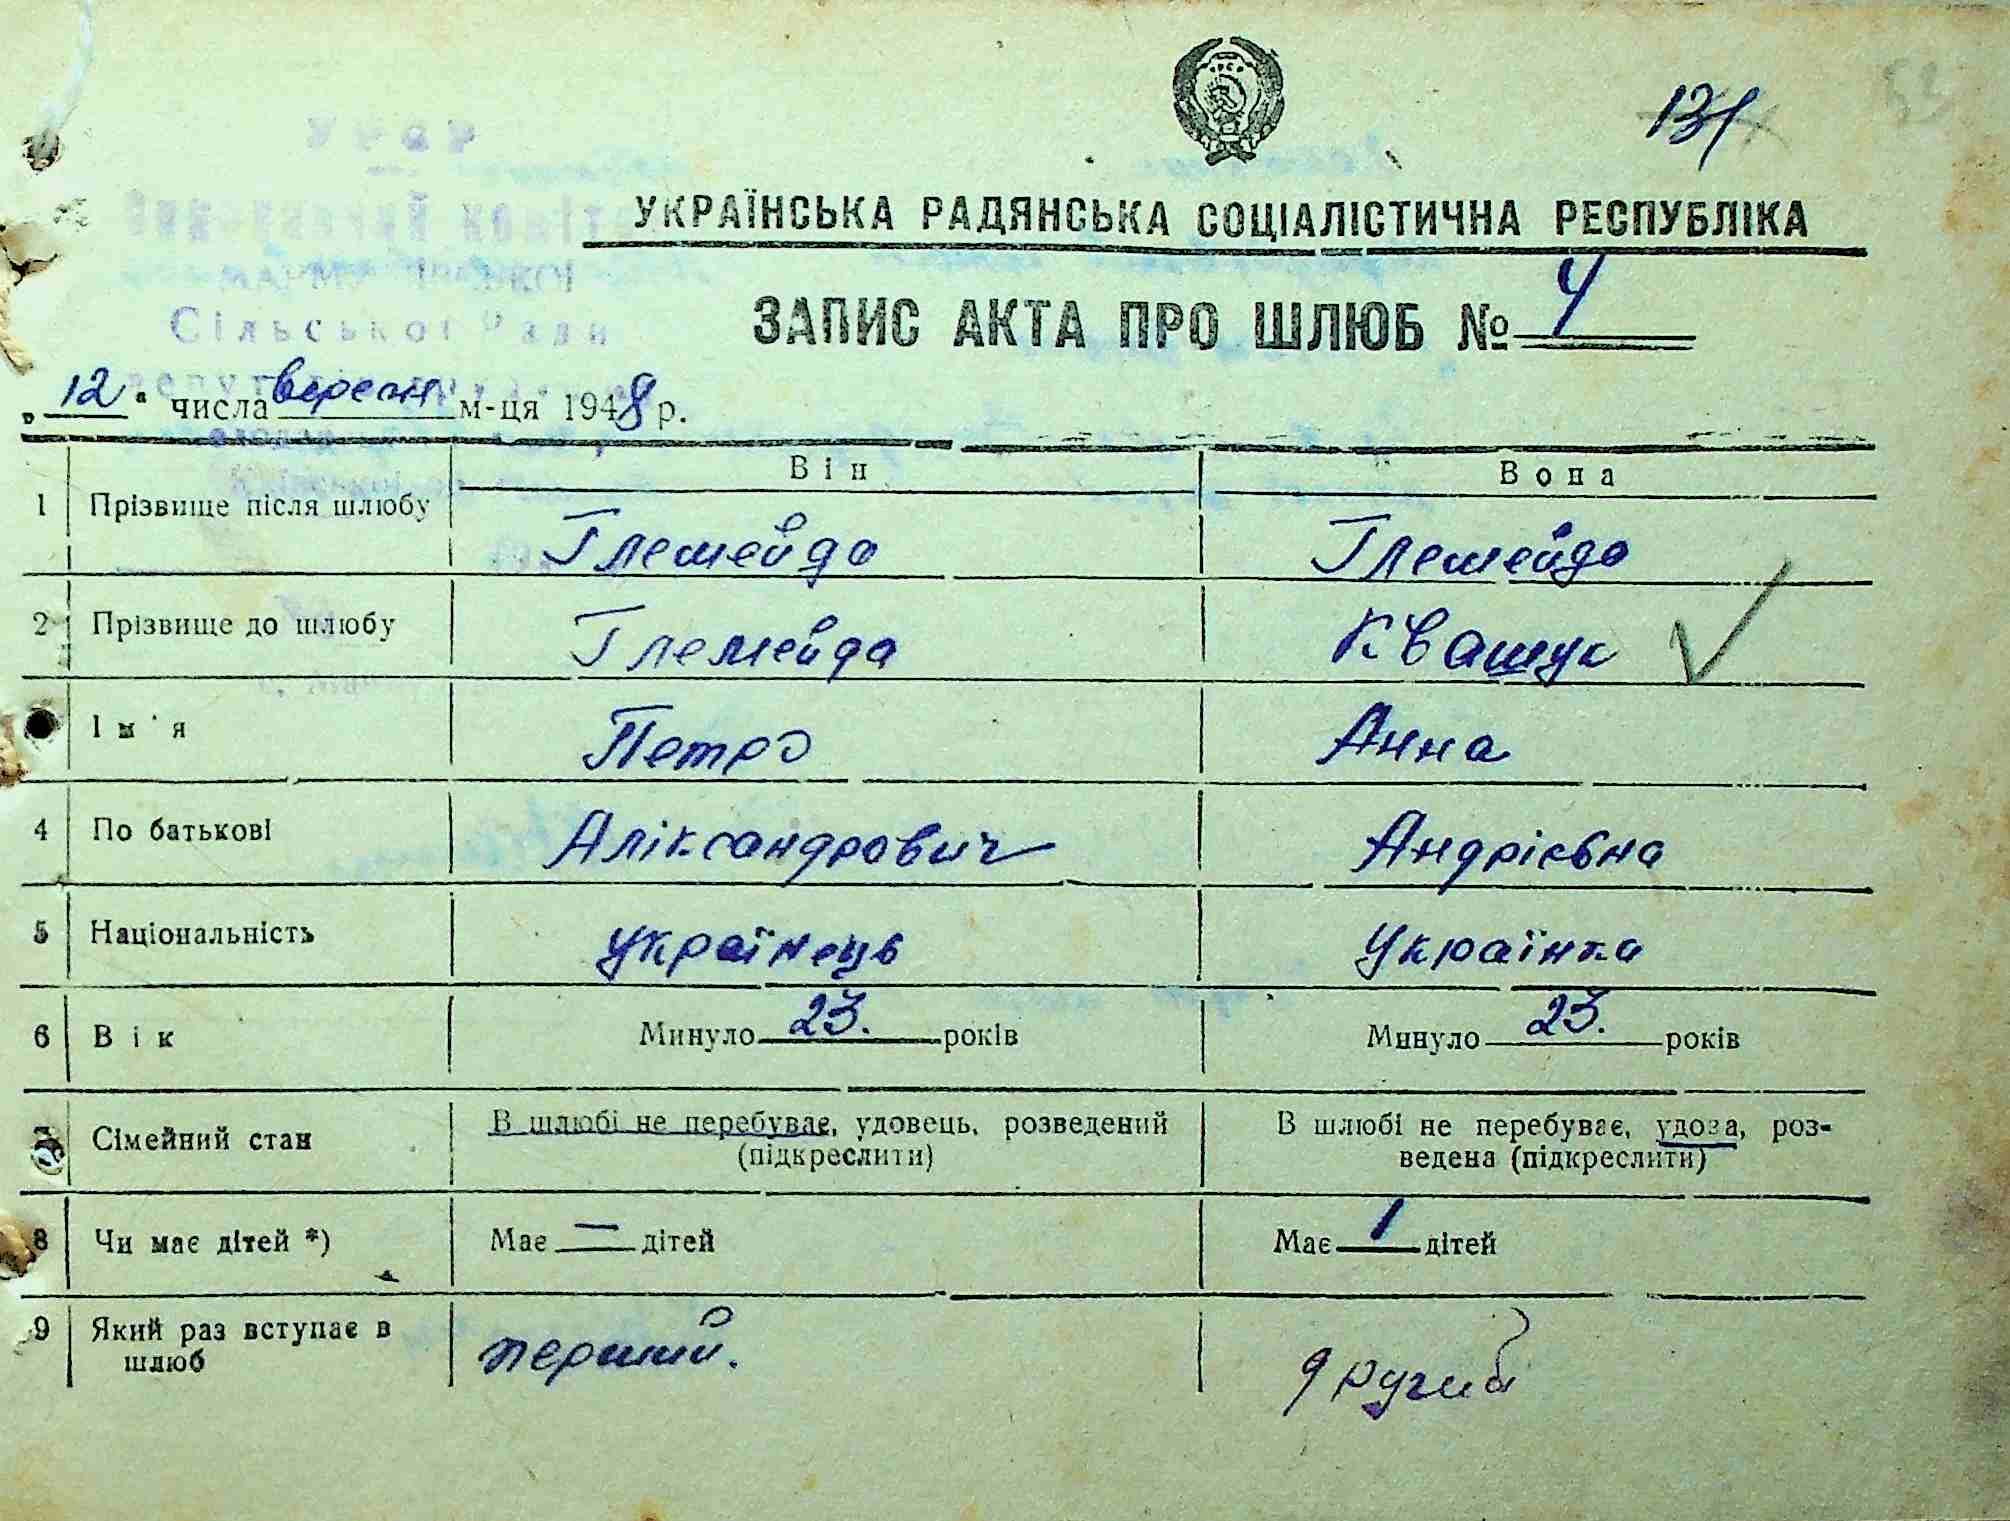 131
УКРАЇНСЬКА РАДЯНСЬКА СОЦІАЛІСТИЧНА РЕСПУБЛІКА
ЗАПИС АКТА ПРО ШЛЮБ № 4
„12“ числа вересн м-ця 1948 р.
Він Вона
1 Прізвище після шлюбу Глемейда Глемейда
2 Прізвище до шлюбу Глемейда Квашук
Ім'я Петро Анна
4 По батькові Аліксандрович Андрієвна
5 Національність українець Українка
6 Вік Минуло 23. років Минуло 23. років
Сімейний стан В шлюбі не перебуває, удовець, розведений В шлюбі не перебуває, удова, роз-
(підкреслити) ведена (підкреслити)
8 Чи має дітей *) Має — дітей Має 1 дітей
9 Який раз вступає в
шлюб перший. другий